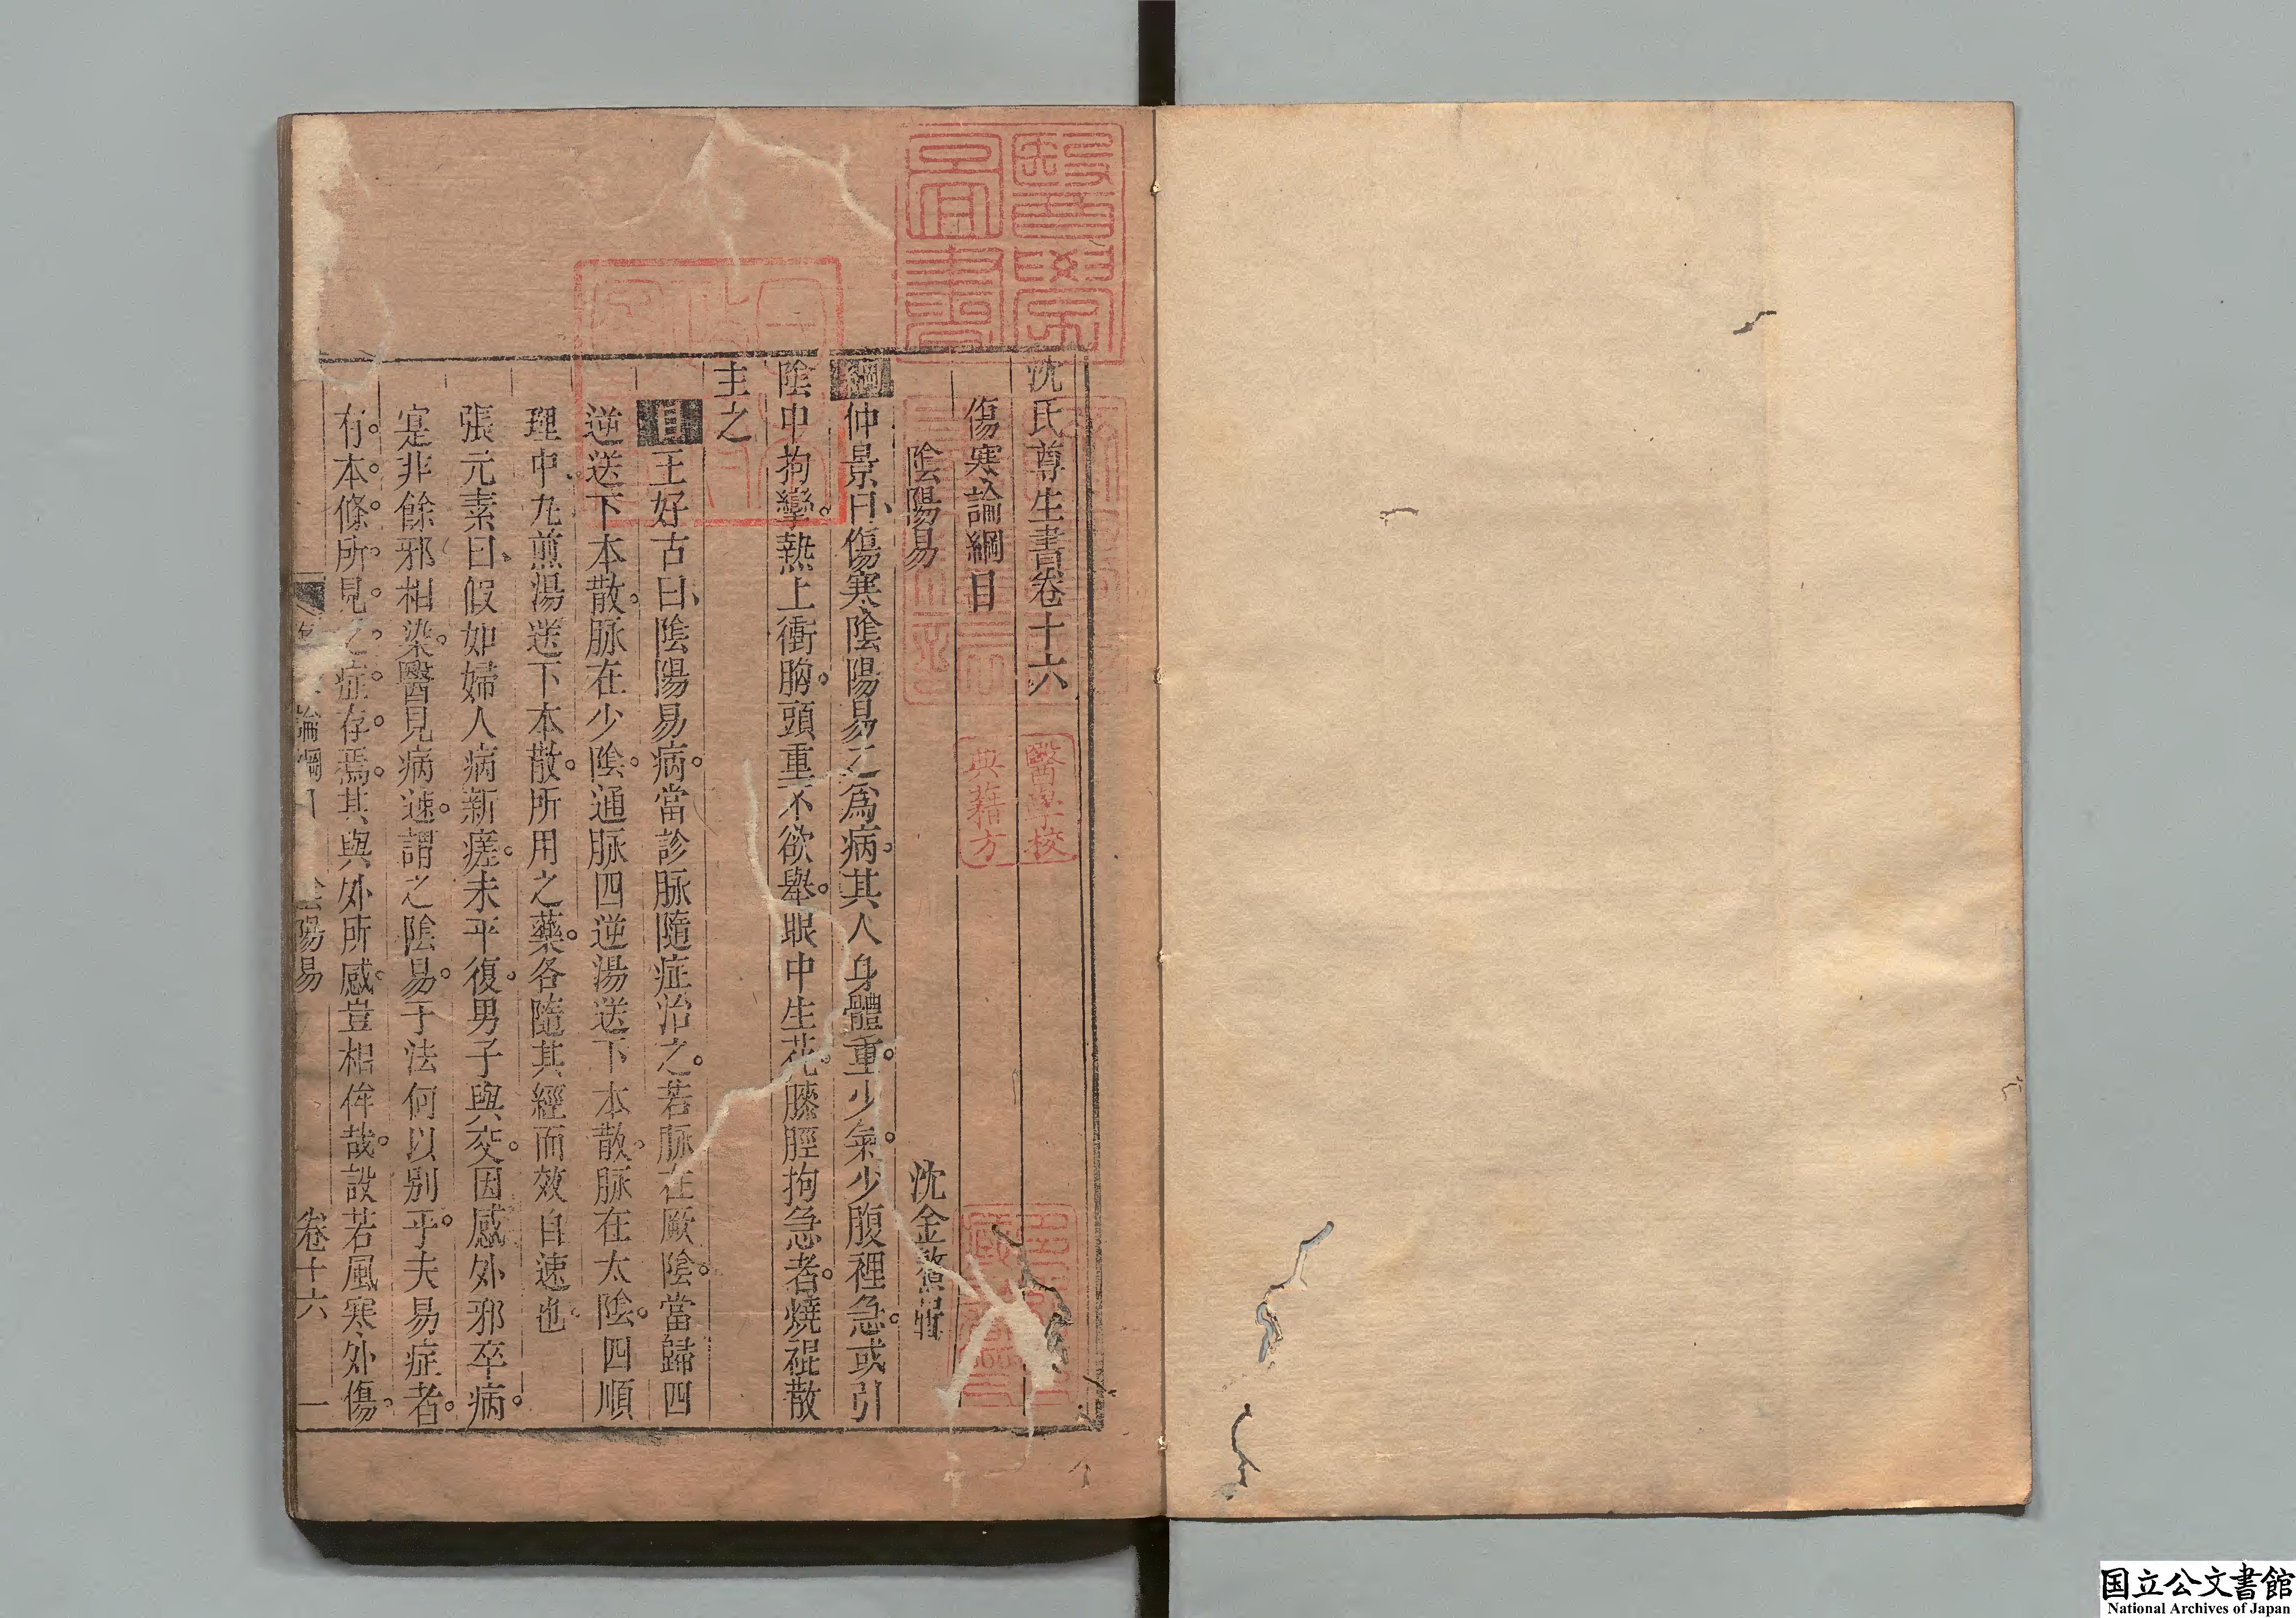 沈氏尊生書卷十六
傷寒論綱目
陰陽易
沈金鰲輯
綱仲景曰、傷寒陰陽易之為病。其人身體重。少氣。少腹裡急。或引
陰中拘攣。熱上衝胸。頭重不欲舉。眼中生花。膝脛拘急者。燒裩散
主之
目王好古曰、陰陽易病。當診脈隨症治之。若脈在厥陰。當歸四
逆送下本散。脈在少陰。通脈四逆湯送下本散。脈在太陰。四順
理中丸煎湯送下本散。所用之藥。各隨其經而效自速也。
張元素曰、假如婦人病新瘥。未平復。男子與交。因感外邪卒病。
寔非餘邪相染。醫見病速。謂之陰易。于法何以別乎。夫易症者。
有。本。條。所。見。之。症。存。焉。其與外所感。豈相侔哉。設若風寒外傷。
論綱目
陰陽易
卷十六
一
醫學圖書
醫學校
典籍方
国立公文書館
National Archives of Japan